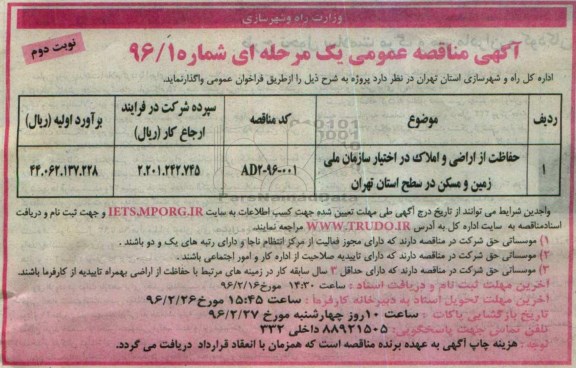 وزارت راه و شهرسازی
نوبت دوم
آگهی مناقصه عمومی یک مرحله ای شماره ۹۶/۱
اداره کل راه و شهرسازی استان تهران در نظر دارد پروژه به شرح ذیل را ازطریق فراخوان عمومی واگذارنماید.
ردیف موضوع کد مناقصه سپرده شرکت در فرایند ارجاع کار (ریال) برآورد اولیه (ریال)
۱ حفاظت از اراضی و املاک در اختیار سازمان ملی زمین و مسکن در سطح استان تهران AD2-۹۶-۰۰۱ ۲.۲۰۱.۲۴۲.۷۴۵ ۴۴.۰۶۲.۱۳۷.۲۲۸
واجدین شرایط می توانند از تاریخ درج آگهی طی مهلت تعیین شده جهت کسب اطلاعات به سایت IETS.MPORG.IR و جهت ثبت نام و دریافت
اسنادمناقصه به سایت اداره کل به آدرس WWW.TRUDO.IR مراجعه نمایند.
۱) موسساتی حق شرکت در مناقصه دارند که دارای مجوز فعالیت از مرکز انتظام ناجا و دارای رتبه های یک و دو باشند .
۲) موسساتی حق شرکت در مناقصه دارند که دارای تاییدیه صلاحیت از اداره کار و امور اجتماعی باشند .
۳) موسساتی حق شرکت در مناقصه دارند که دارای حداقل ۳ سال سابقه کار در زمینه های مرتبط با حفاظت از اراضی بهمراه تاییدیه از کارفرما باشند.
آخرین مهلت ثبت نام و دریافت اسناد : ساعت ۱۴:۳۰ مورخ ۹۶/۲/۱۶
آخرین مهلت تحویل اسناد به دبیرخانه کارفرما : ساعت ۱۵:۴۵ مورخ ۹۶/۲/۲۶
تاریخ بازگشایی پاکات : ساعت ۱۰ روز چهارشنبه مورخ ۹۶/۲/۲۷
تلفن تماس جهت پاسخگویی: ۸۸۹۲۱۵۰۵ داخلی ۳۳۲
توجه : هزینه چاپ آگهی به عهده برنده مناقصه است که همزمان با انعقاد قرارداد دریافت می گردد.